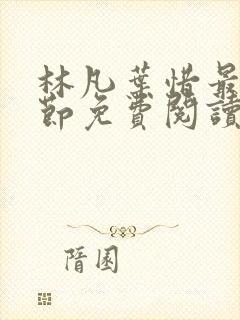 林凡葉惜最
節免費閱讀
隋園